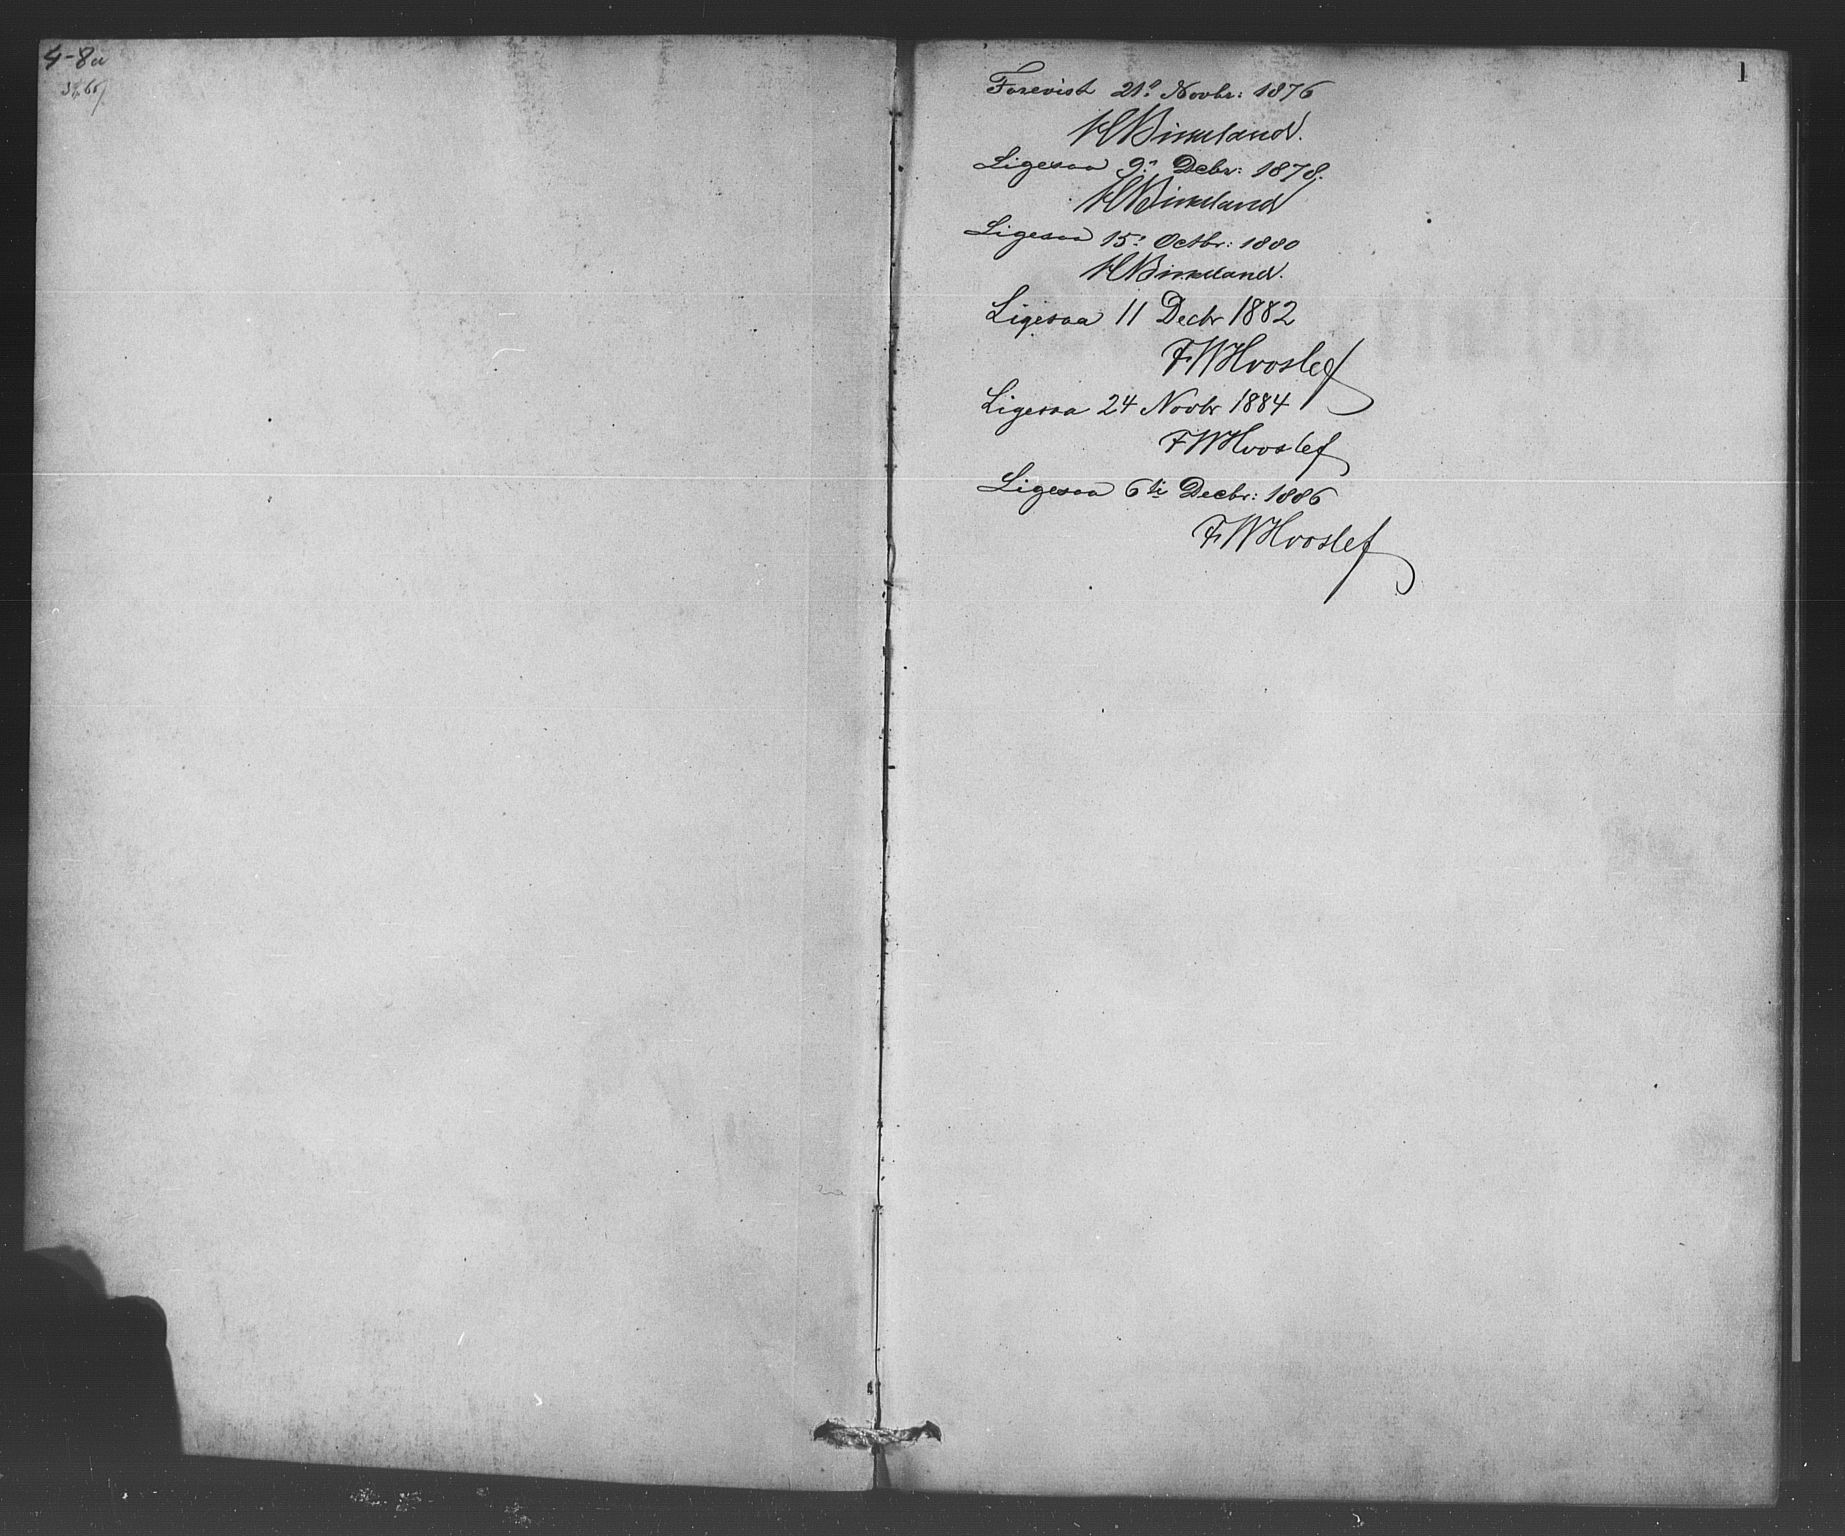 4-8a
1
Forevist 21d Novbr: 1876
HBirkeland.
Ligesaa 9n Debr: 1878.
HBirkeland
Ligesaa 15d Octbr: 1880
HBirkeland.
Ligesaa 11 Decbr 1882
FWHvoslef
Ligesaa 24 Novbr 1884
FWHvoslef
Ligesaa 6te Decbr: 1886
FWHvoslef